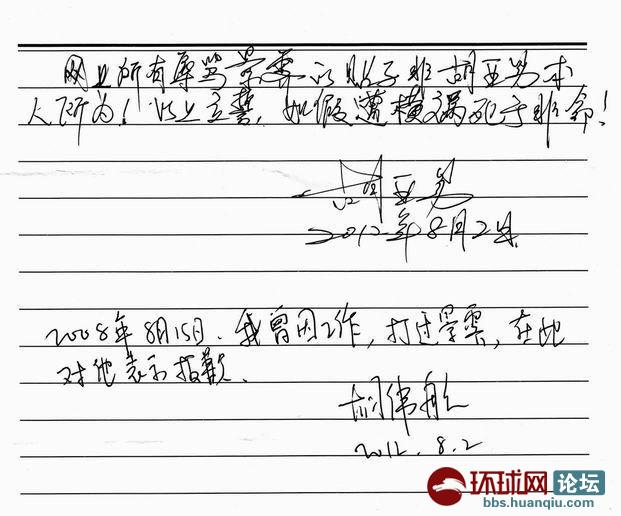 网上所有辱骂景雲的贴子非胡亚男本
人所为！以上立誓，如假遭横祸死于非命！
胡亚男
2012年8月2号.
2008年8月15日.我曾因工作,打过景雲,在此
对他表示抱歉.
胡伟航
2012.8.2
环球网 论坛
bbs.huanqiu.com